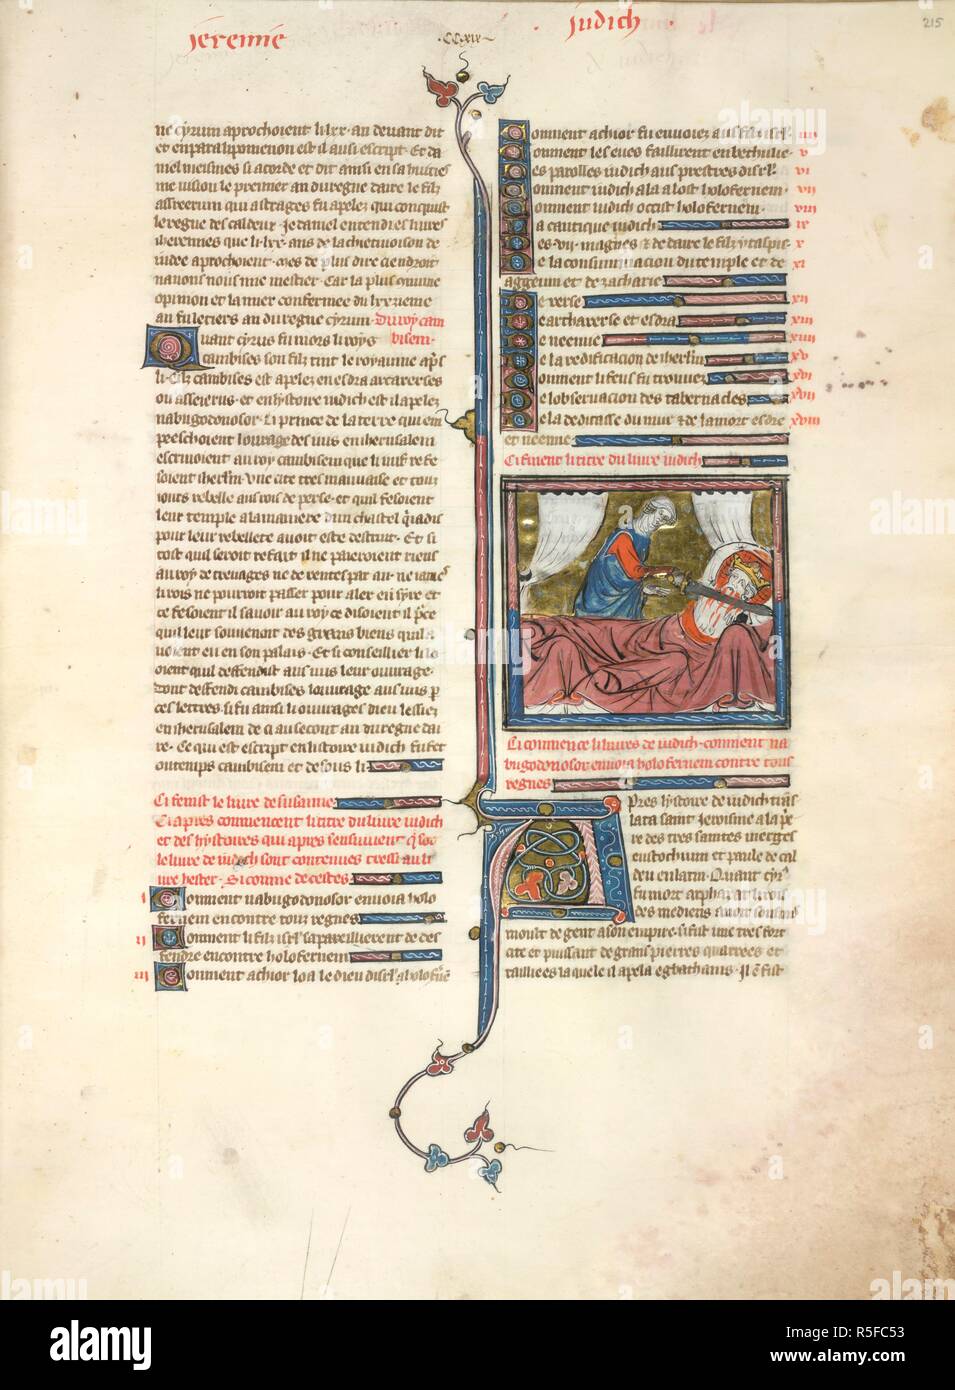 jeremie
.CCxix.
. judich .
215
ne cyrum aprochoient li lxx. an devant dit
et en paralipomenon est il ausi escript. Et da
niel meismes si acorde et dit ausi en sa
me vision le premier an du regne daire le filz
assuerum qui astrages fu apelez qui conquist
le regne des caldeux. Je daniel entendi es livres
iheremies que li. lxx. ans de la chietivoison de
iudee aprochoient. Mes de plus dire ci endroit
navons nous mie mestier. Car la plus comune
opinion et la miex confermee du lxxieme
an fu le tiers an du regne cyrum. Du roy cam
Quant cyrus fu mors li roys bisem.
cambises son filz tint le royaume apres
li. Cilz cambises est apelez en esdra arcaxerses
ou assuerus. et en lystoire iudich est il apelez
nabugodonosor. Li prince de la terre qui em
peeschoient louvrage des iuis en iherusalem
escrivoient au roy cambisem que li iuif refe
soient iherlm. une cite tres mauvaise et touz
iours rebelle aus rois de perse. et quil fesoient
leur temple a la maniere dun chastel qui iadis
pour leur rebellete avoit este destruit. Et si
tost quil seroit refait il ne paieroient riens
au roy de treuages ne de rentes par an. ne iames
li rois ne pourroit passer pour aler en syre et
ce fesoient il savoir au roy ce disoient il por ce
quil leur souvenoit des granz biens quil a
voient eu en son palais. Et si conseillier li lo
oient quil deffendist aus iuis leur ouvrage.
dont deffendi cambises louvrage aus iuis par
ces lettres. si fu ainsi li ouvrages dieu lessiez
en iherusalem de ci au secont an du regne dai
re. Ce qui est escript en listoire iudich fu fet
ou temps cambisem et desous li.
Ci fenist le livre de susanne.
Ci apres commencent li titre du livre iudich
et des hystoires qui apres sensuivent que sor
le livre de iudich sont contenues tressi au li
vre hester. Si comme de cestes.
i Coment nabugodonosor envoia holo
fernem encontre touz regnes
ii Coment li filz israel sapareillierent de des
fendre encontre holofernem
iii Coment achior loa le dieu disrael a holofernes
Comment achior fu envoiez aus filz israel. iiii
Coment les eues faillirent en bethulie. v
Des parolles iudich aus prestres disrael. vi
Coment iudich ala a lost holofernem. vii
Coment iudich occist holofernem. viii
La cantique iudich ix
Des .vii. magnes et de daire le filz ytaspis. x
De la consummacion du temple et de xi
aggeum et de zacharie
De xerse xii
De arthaxerse et esdra xiii
De neemie xiiii
De la redificacion de iherlm xv
Coment li feus fu trouvez xvi
De lobservacion des tabernacles xvii
De la dedicasse du mur et de la mort esdre xviii
et neemie.
Ci finent li titre du livre iudich
Ci commence li livres de iudich. comment na
bugodonosor envoia holofernem contre touz
regnes
Apres lystoire de iudich trans
lata saint jeroisme a la priere
re des tres saintes vierges
eustochium et paule de cal
deu en latin. Quant cyrus
fu mort arphaxat li rois
des mediens avoit sousmis
moult de gent a son empire. si fist une tres fort
cite et puissant de grans pierres quarrees et
tailliees la quele il apela egbathanis. Il en fist
alamy
www.alamy.com
Image ID: R5FC53